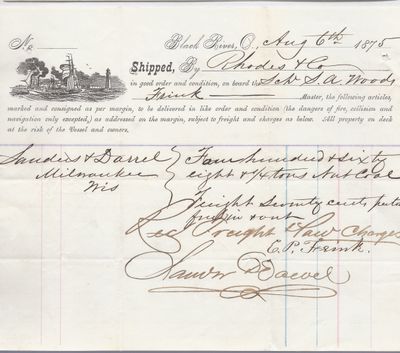 No. Black River, O., Aug 6th 1875
Shipped, By Rhodes & Co
in good order and condition, on board the Schr S. A. Woods
Frink Master, the following articles,
marked and consigned as per margin, to be delivered in like order and condition (the dangers of fire, collision and
navigation only excepted,) as addressed on the margin, subject to freight and charges as below. All property on deck
at the risk of the Vessel and owners.
Sanders & Darrel Four hundred & sixty
Milwaukee eight & ¼ tons Nut Coal
Wis
Freight Seventy cents per ton
free in & out
Rec Freight & Tow Charges
C. P. Frink.